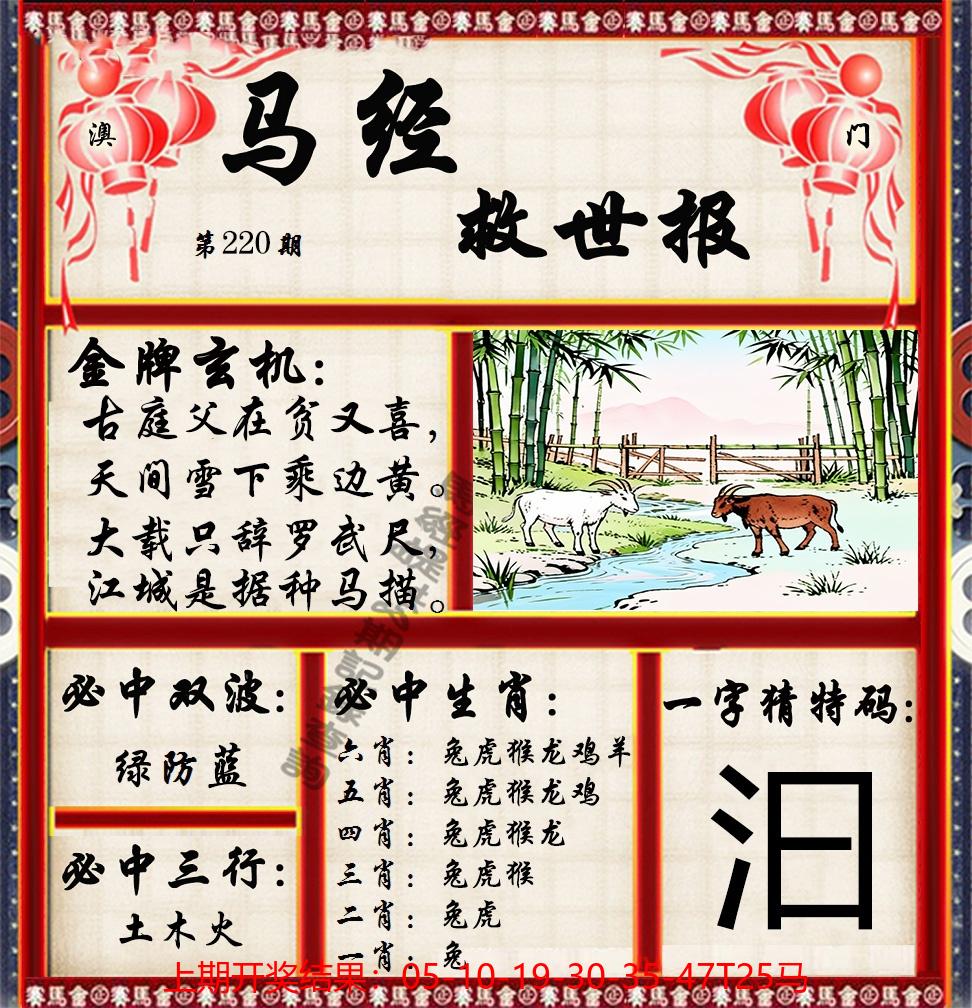 澳 门
马经
救世报
第220期
金牌玄机：
古庭父在贫又喜，
天间雪下乘边黄。
大载只辞罗武尺，
江城是据种马描。
必中双波：
绿防蓝
必中三行：
土木火
必中生肖：
六肖：兔虎猴龙鸡羊
五肖：兔虎猴龙鸡
四肖：兔虎猴龙
三肖：兔虎猴
二肖：兔虎
一肖：兔
一字猜特码：
汩
上期开奖结果：05-10-19-30-35-47T25马